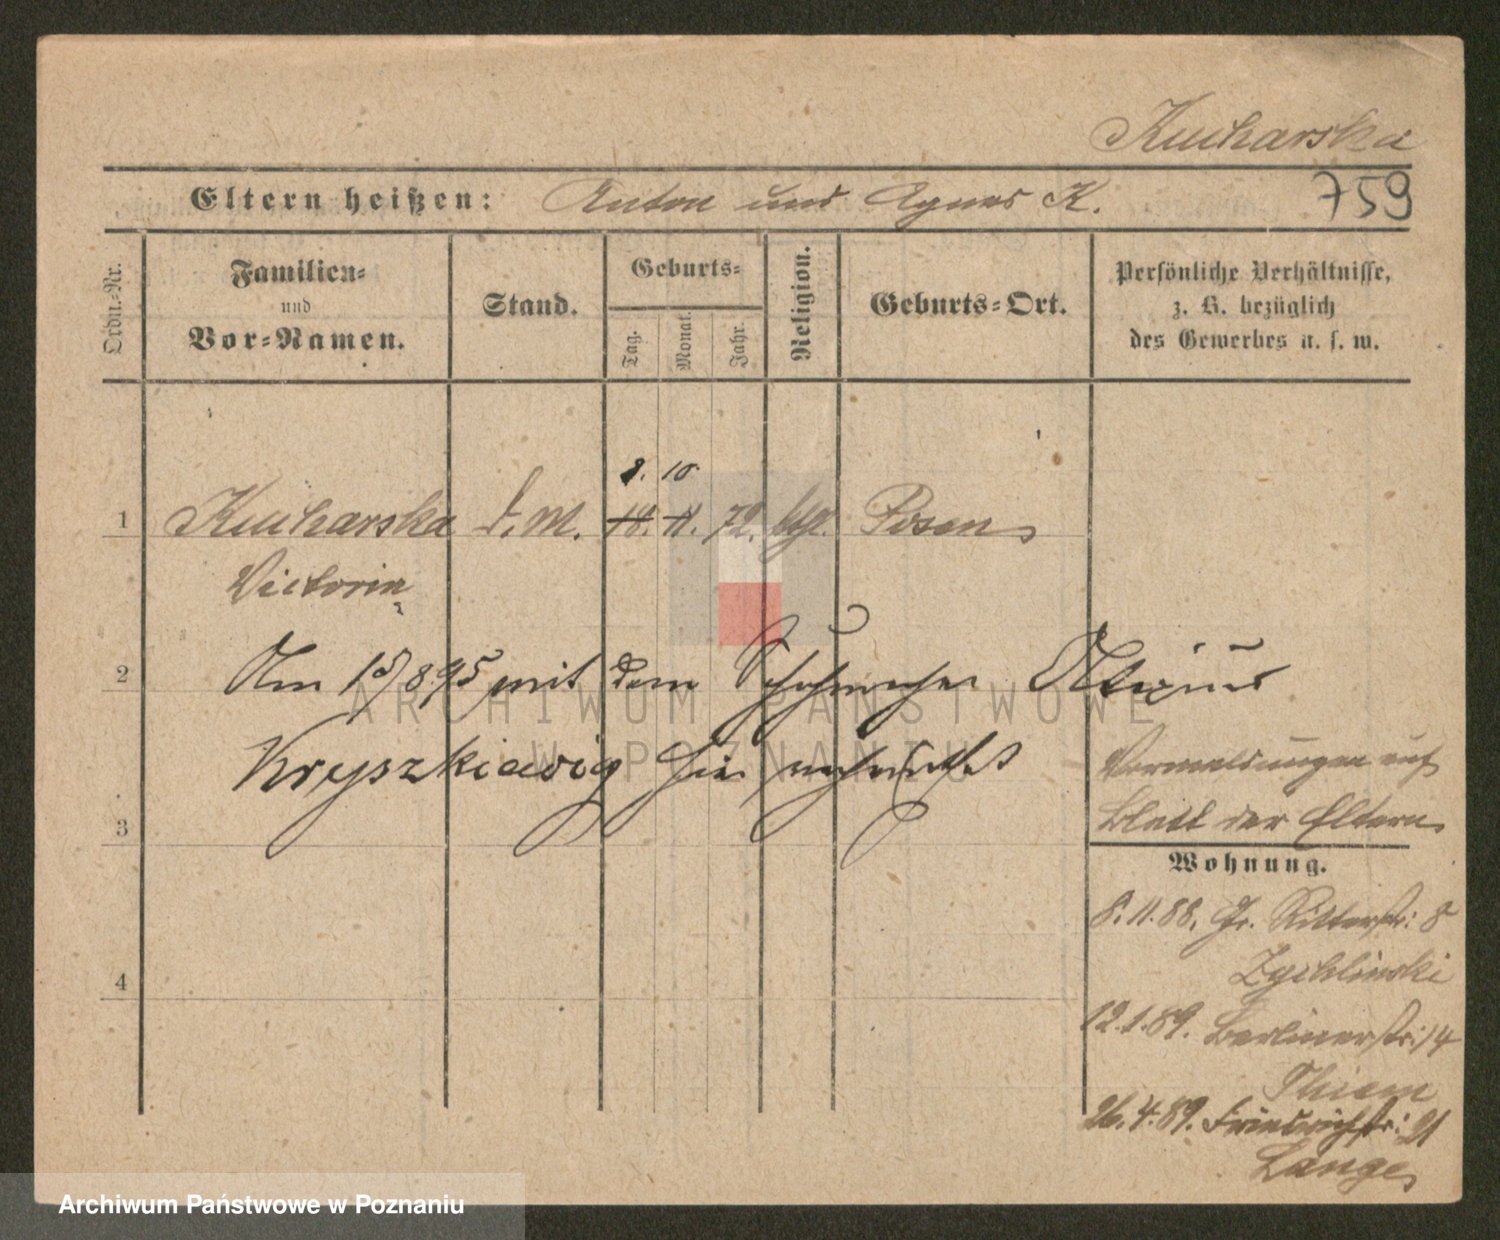 Kucharska
Eltern heißen: Anton und Agnes K. 759
Ordn.-Nr.
Familien-
und
Vor-Namen.
Stand.
Geburts-
Tag.
Monat.
Jahr.
Religion.
Geburts-Ort.
Persönliche Verhältnisse,
z. B. bezüglich
des Gewerbes u. s. w.
8. 10
1 Kucharska d. M. 18. 11. 72. kgl. Posen
Victoria
2 Am 15/8 95 mit dem Schuhmacher
Kryszkiewicz hier verheirathet
Vormeldungen auf
Blatt der Eltern
3
Wohnung.
8.11.88. Gr. Ritterstr: 8
Zychlinski
4
12.1.89. Berlinerstr: 14
Thiem
26.4.89. Friedrichstr: 21
Lange
ARCHIWUM PAŃSTWOWE
W POZNANIU
Archiwum Państwowe w Poznaniu